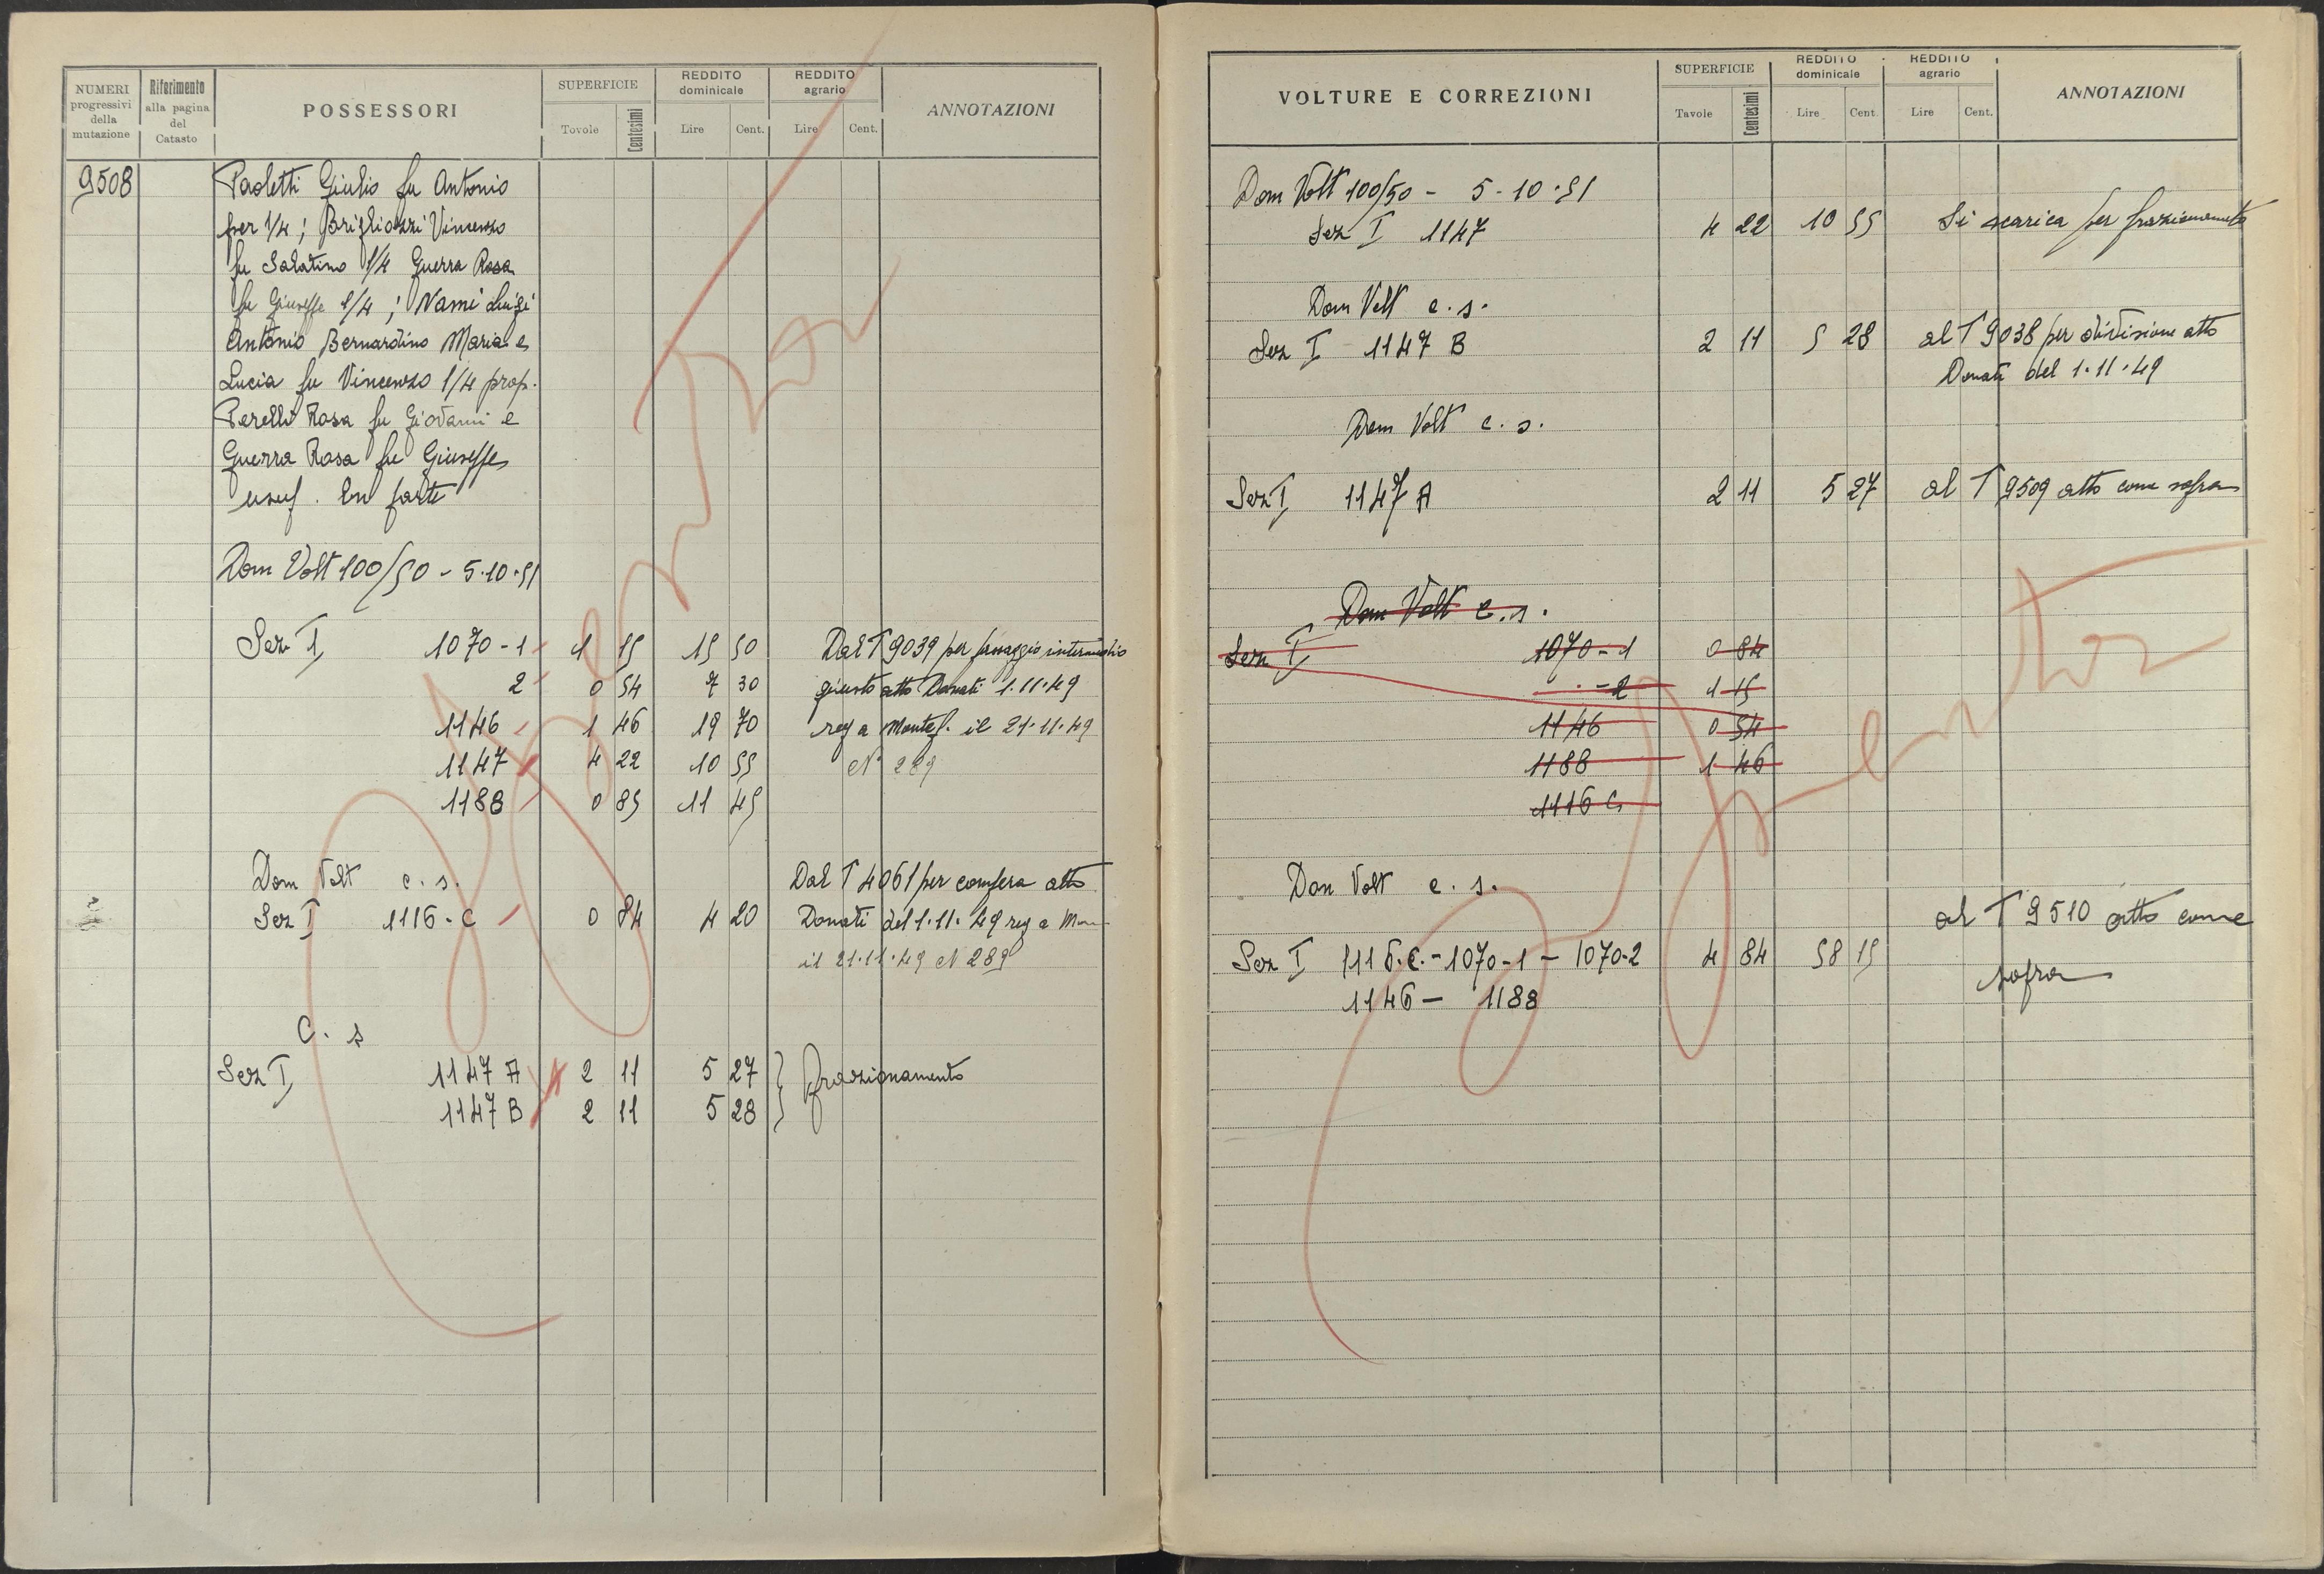 NUMERI progressivi della mutazione
Riferimento alla pagina del Catasto
POSSESSORI
SUPERFICIE
Tovole Centesimi
REDDITO dominicale
Lire Cent.
REDDITO agrario
Lire Cent.
ANNOTAZIONI
9508 Paoletti Giulio fu Antonio
per 1/4; Brigliozzi Vincenzo
fu Sabatino 1/4 Guerra Rosa
fu Giuseppe 1/4; Nami Luigi
Antonio Bernardino Maria e
Lucia fu Vincenzo 1/4 prop.
Perelli Rosa fu Giovanni e
Guerra Rosa fu Giuseppe
usuf. in parte
Dom Volt 100/50 - 5.10.51
Sez I 1070-1 1 15 15 50 Dal T 9039 per passaggio intermedio
2 0 54 7 30 giusto atto Donati 1.11.49
1146 1 46 19 70 reg a Montef. il 21.11.49
1147 4 22 10 55 N° 289
1188 0 85 11 45
Dom Volt c.s. Dal T 4061 per compera atto
Sez I 1116-C 0 84 4 20 Donati del 1.11.49 reg a Mon
il 21.11.49 N 289
C. s
Sez I 1147 A 2 11 5 27 frazionamento
1147 B 2 11 5 28
VOLTURE E CORREZIONI
SUPERFICIE
Tavole Centesimi
REDDITO dominicale
Lire Cent
REDDITO agrario
Lire Cent.
ANNOTAZIONI
Dom Volt 100/50 - 5-10.51
Sez I 1147 4 22 10 55 Si scarica per frazionamento
Dom Volt c.s.
Sez I 1147 B 2 11 5 28 al T 9038 per divisione atto
Donati del 1.11.49
Dom Volt c.s.
Sez I 1147 A 2 11 5 27 al T 9509 atto come sopra
Dom Volt c.s.
Sez I 1070-1 0 84
-2 1 15
1146 0 54
1188 1 46
1116 C
Dom Volt c.s.
al T 9510 atto come
Sez I 1116.C.-1070-1-1070-2 4 84 58 15
sopra
1146 - 1188